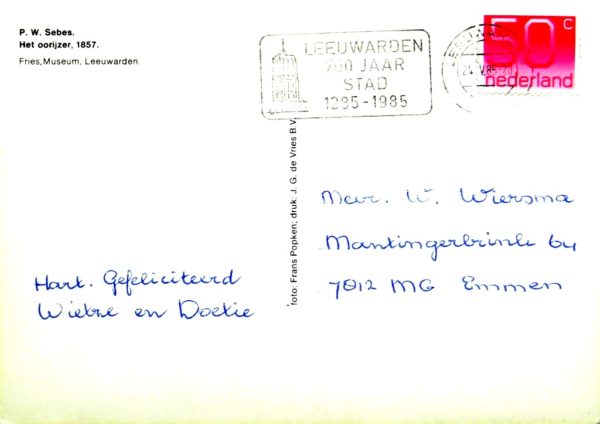 P. W. Sebes.
Het oorijzer, 1857.
Fries, Museum, Leeuwarden.
LEEUWARDEN
700 JAAR
STAD
1285-1985
50 C
nederland
foto: Frans Popken; druk: J. G. de Vries B.V.
Mevr. W. Wiersma
Mantingerbrink 64
7812 MG Emmen
Hart. Gefeliciteerd
Wietze en Doetie